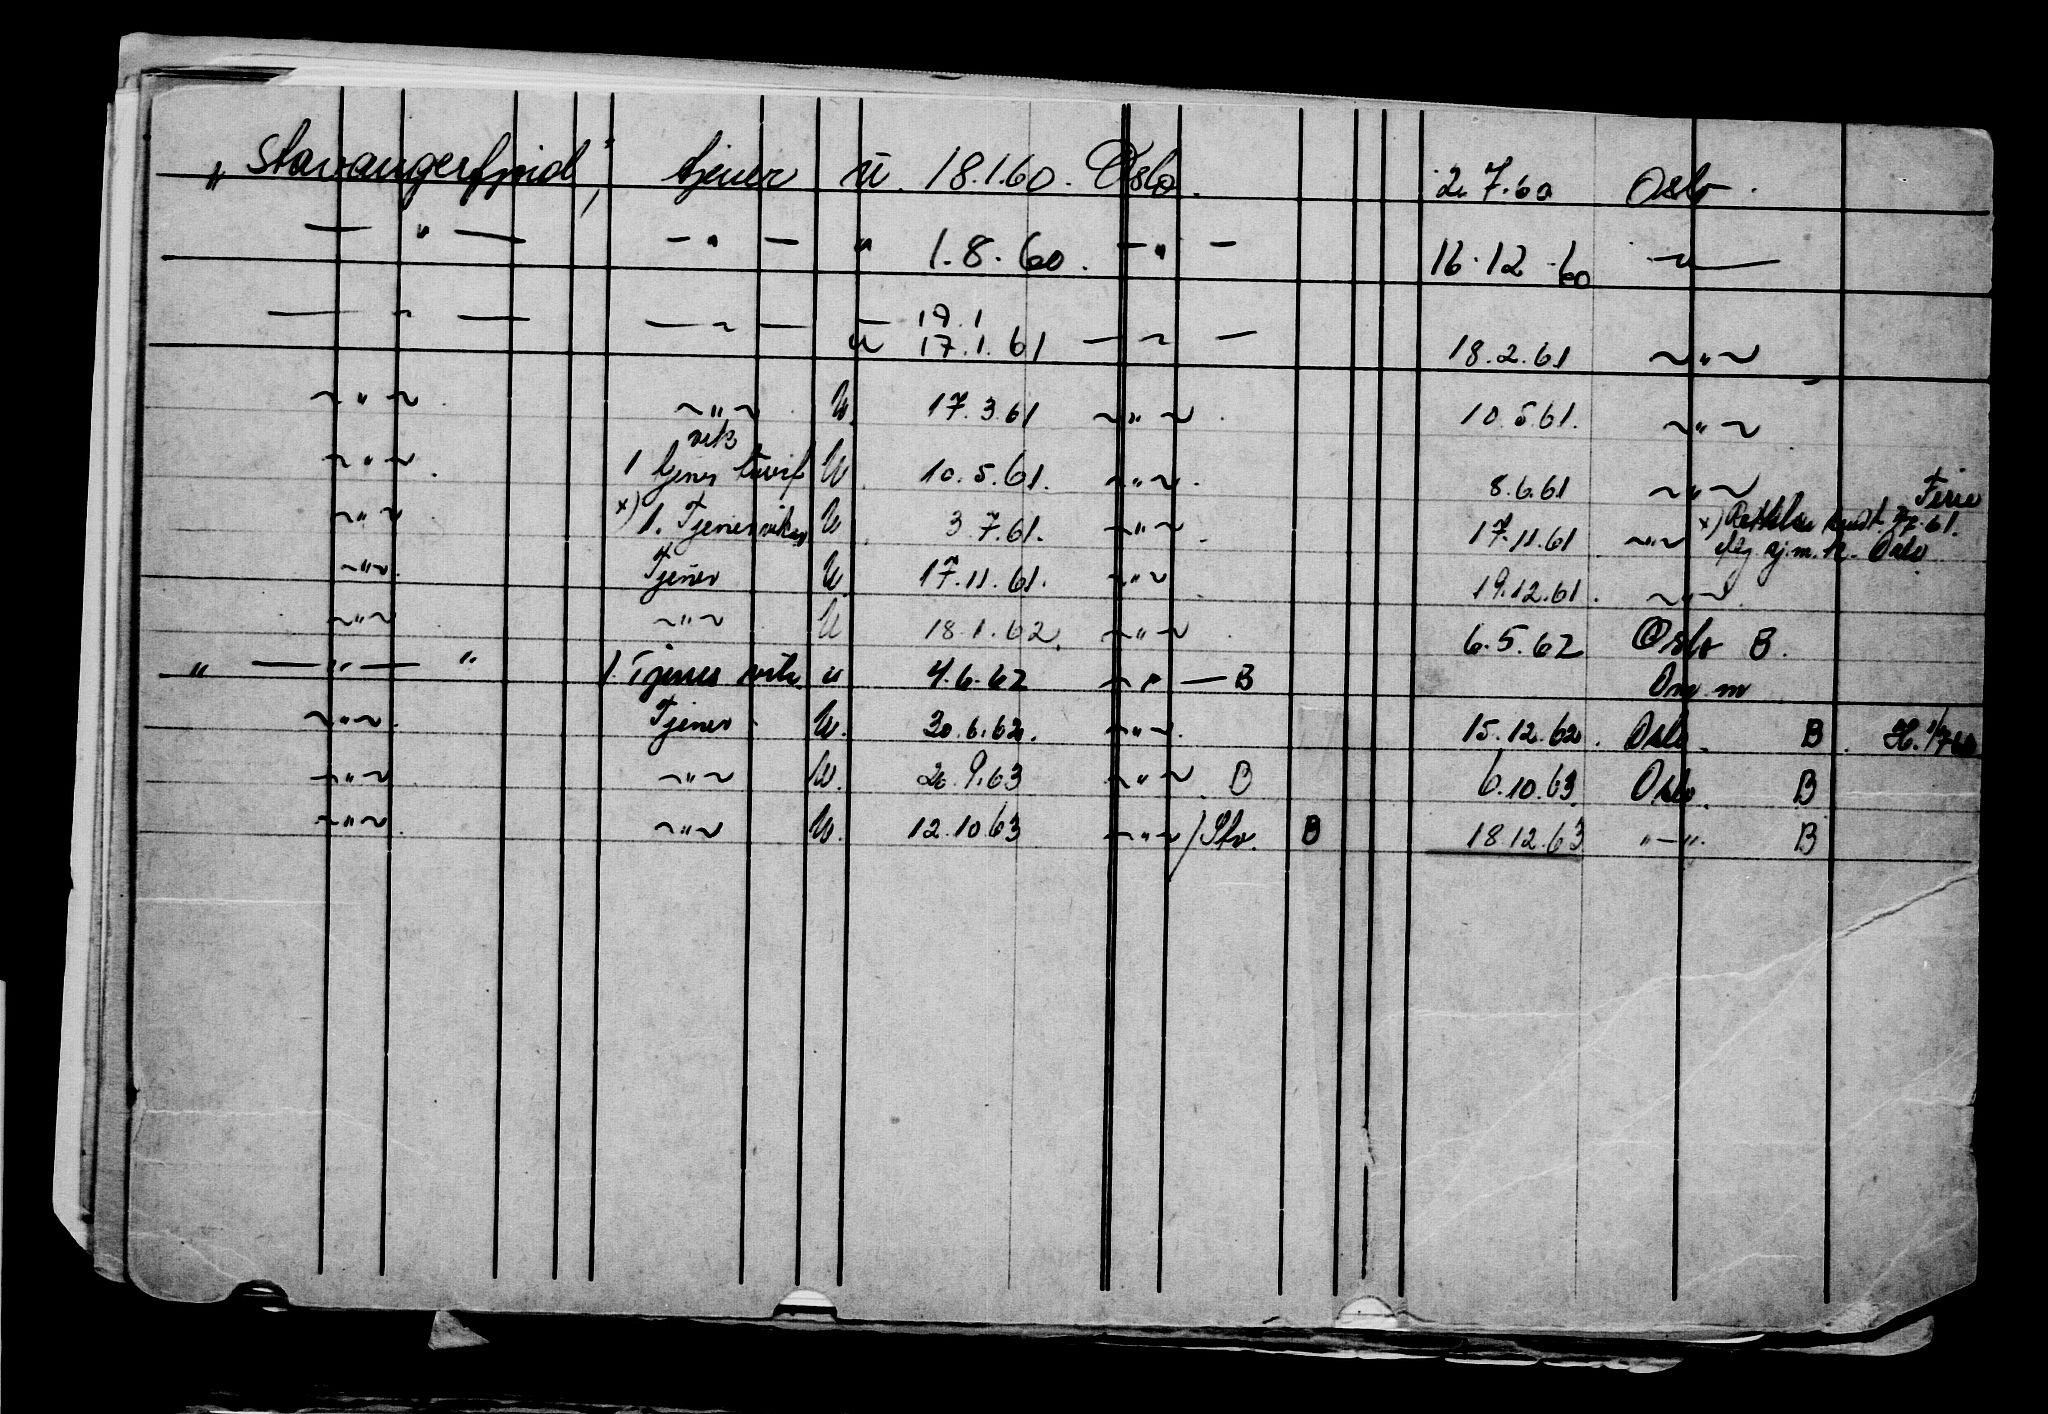 „ Stavangerfjord," tjener u. 18.1.60. Oslo. 2.7.60 Oslo.
— " — — " — " 1.8.60. — " — 16.12.60 — " —
19.1
— " — — " — u 17.1.61 — " — 18.2.61 ~ " ~
~ " ~ ~ " ~ U. 17.3.61 ~ " ~ 10.5.61. ~ " ~
vik
~ " ~ 1 tjener U 10.5.61. ~ " ~ 8.6.61 ~ " ~ Ferie
~ " ~ x) 1. Tjener vikar U 3.7.61. ~ " ~ 17.11.61 ~ " ~ x)
Oslo
~ " ~ Tjener U 17.11.61. ~ " ~ 19.12.61. ~ " ~
~ " ~ ~ " ~ U 18.1.62. ~ " ~ 6.5.62 Oslo B.
„ — " — " 1. Tjener vik. u 4.6.62 ~ " — B
~ " ~ Tjener U. 30.6.62. ~ " ~ 15.12.62. Oslo. B.
~ " ~ ~ " ~ U. 26.9.63 ~ " ~ B 6.10.63. Oslo. B
~ " ~ ~ " ~ U. 12.10.63 ~ " ~ /Stv. B 18.12.63 " — ". B